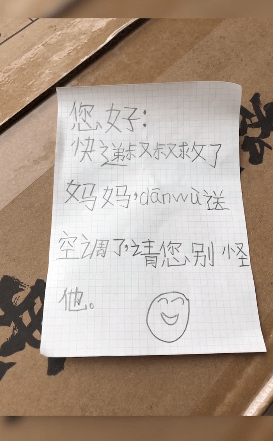 您好:
快递叔叔救了
妈妈,dānwù送
空调了,请您别怪
他。